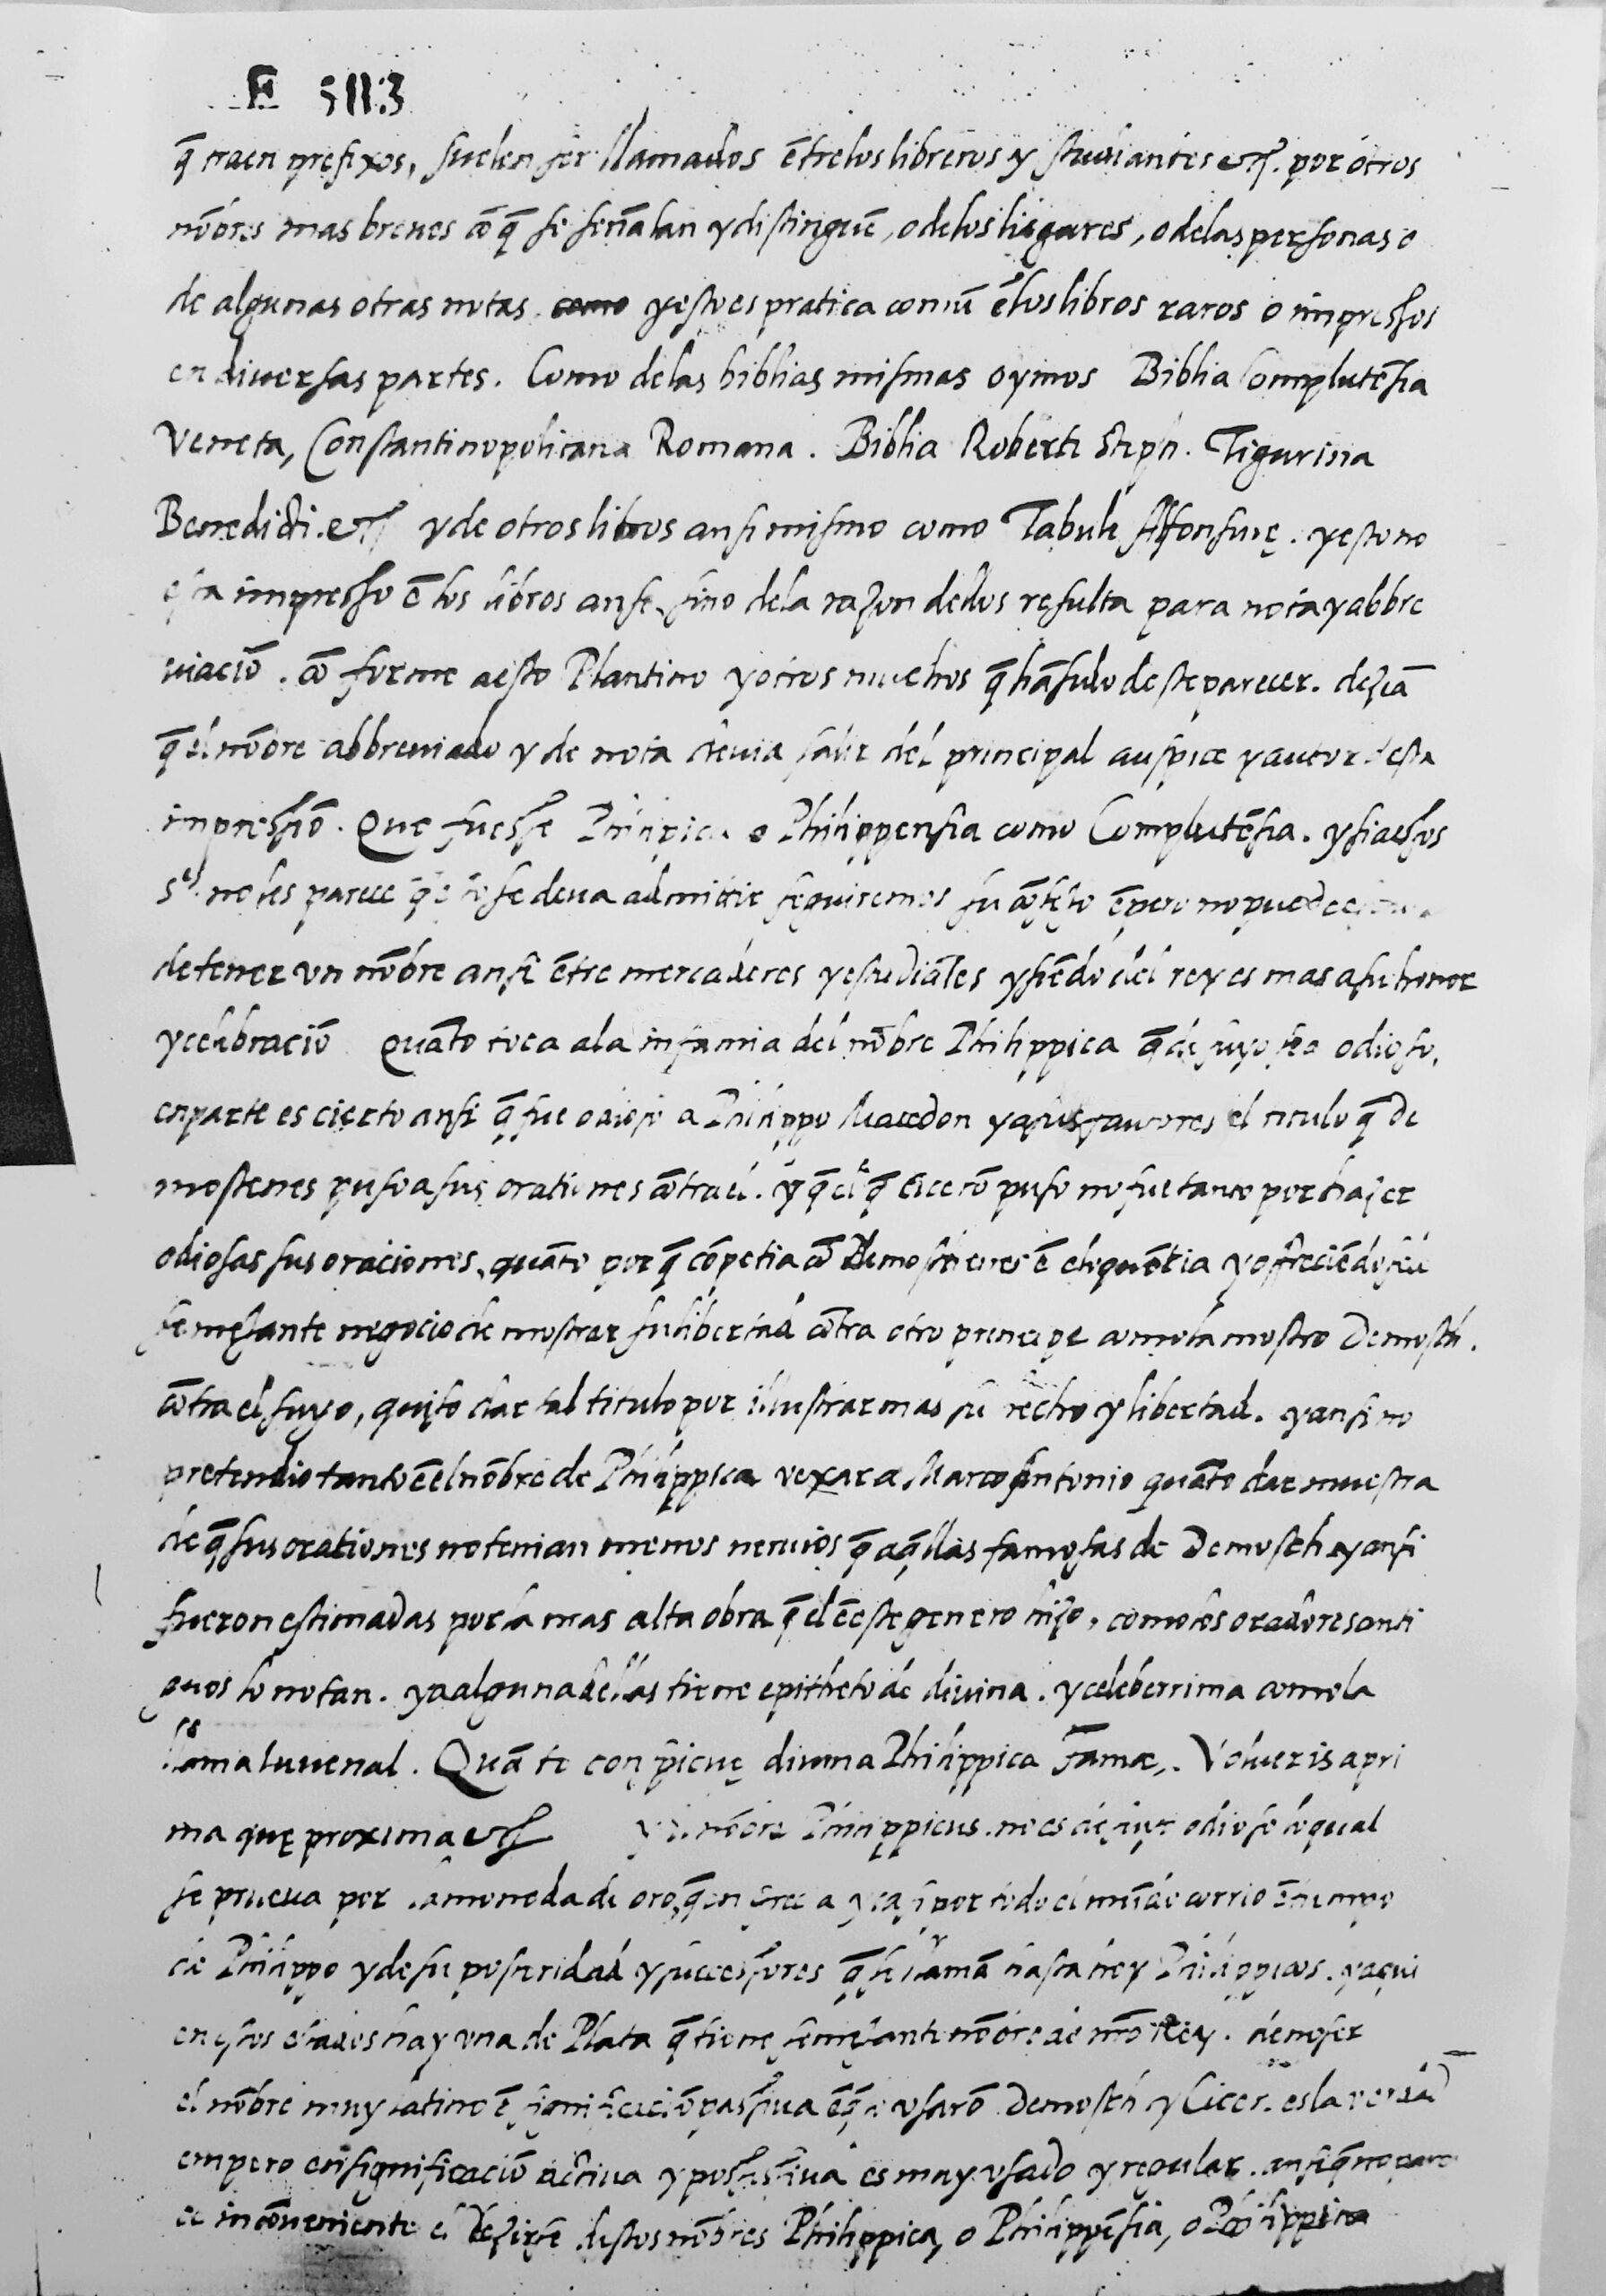 E 5113
q̄ traen prefixos, suelen ser llamados ētre los libreros y studiantes etc. por otros
nōbres mas breues cō q̄ se señalan y distinguē, o de los lugares, o de las personas o
de algunas otras notas. como y esto es pratica comū ē los libros raros o impressos
en diuersas partes. Como de las biblias mismas oymos Biblia Complutēsia
Veneta, Constantinopolitana Romana. Biblia Roberti Steph. Tigurina
Benedicti. etc y de otros libros ansi mismo como Tabule Alfonsinę. y esto no
esta impresso ē los libros ansi, sino de la razon dellos resulta para nota y abbre
uiaciō. cō forme a esto Plantino y otros muchos q̄ hā sido deste parecer. dezīa
q̄ el nōbre abbreuiado y de nota deuia salir del principal auspice y autor desta
impressiō. Que fuesse Philippica o Philippensia como Complutēsia. y si a essos
S.es no les parece q̄ esto se deua admittir seguiremos su cōsejo ēpero no puede
de tener vn nōbre ansi ētre mercaderes y estudiātes y siēdo del rey es mas a su honor
y celebraciō Quāto toca a la infamia del nōbre Philippica q̄ de suyo sea odioso,
en parte es cierto ansi q̄ fue odioso a Philippo Macedon y a sus fautores el titulo q̄ De
mostenes puso a sus orationes cōtra el. y q̄ el q̄ Cicerō puso no fue tanto por hazer
odiosas sus oraciones, quāto por q̄ cōpetia cō Demosthenes ē eloquētia y offreciēdosele
semejante negocio de mostrar su libertad cōtra otro principe como la mostro Demosth.
cōtra el suyo, quiso dar tal titulo por illustrar mas su hecho y libertad. y ansi no
pretendio tanto ē el nōbre de Philippica vexar a Marco Antonio quāto dar muestra
de q̄ sus orationes no tenian menos neruios q̄ aq̄llas famosas de Demosth. y ansi
fueron estimadas por la mas alta obra q̄ el ē este genero hizo, como los oradores anti
guos lo notan. y a alguna dellas tiene epitheto de diuina. y celeberrima como la
llama Iuuenal. Quā te conspicuę diuina Philippica Famæ,. Volueris a pri
ma quę proxima etc y el nōbre Philippicus no es de suyo odioso lo qual
se prueua por la moneda de oro, q̄ en Grecia y casi por todo el mūdo corrio ē tiempo
de Philippo y de su posteridad y successores q̄ se llamā hasta hoy Philippicos. y aqui
en estos estados hay vna de Plata q̄ tiene semejante nōbre de nr̄o Rey. de no ser
el nōbre muy latino ē significaciō passiua ē q̄ le vsarō Demosth y Cicer. es la verdad
empero en significaciō actiua y possessiua es muy vsado y regular. ansi q̄ no pare
ce incōueniente el dezirse destos nōbres Philippica, o Philippēsia, o Philippina